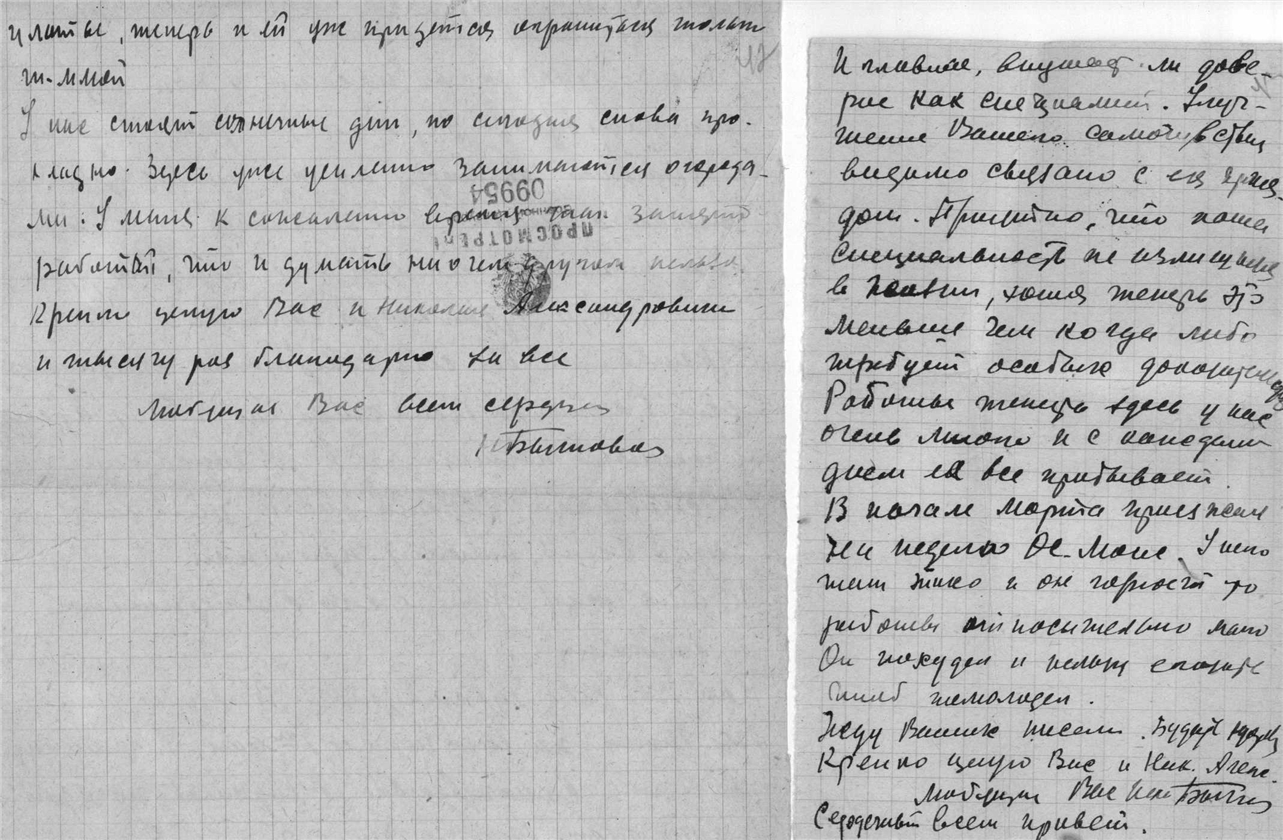 платье, теперь и ей уж придется ограничиться только
У нас стоят солнечные дни, но сегодня снова про-
хладно. Здесь уже усиленно занимаются огорода-
ми. У меня к сожалению время так занято
работой, что и думать ни о чем другом нельзя.
09954
ПРОСМОТРЕНО
Крепко целую Вас и Николая Александровича
и тысячу раз благодарю за все
Любящая Вас всем сердцем
Бытовая
17
И главное, внушает ли дове-
рие как специалист. Улуч-
шение Вашего самочувствия
видимо связано с ея приез-
дом. Приятно, что наша
специальность не излишняя
в жизни, хотя теперь это
меньше чем когда либо
требует особых доказательств
Работы теперь здесь у нас
очень много и с каждым
днем её все прибывает.
В начале марта приезжал
на неделю Ос. Моис. У него
там тихо и он
работы относительно мало
Он похудел и нельзя сказать
чтоб помолодел.
Жду Ваших писем. Будьте здоровы
Крепко целую Вас и Ник. Алекс.
Любящая Вас
Сердечный всем привет.